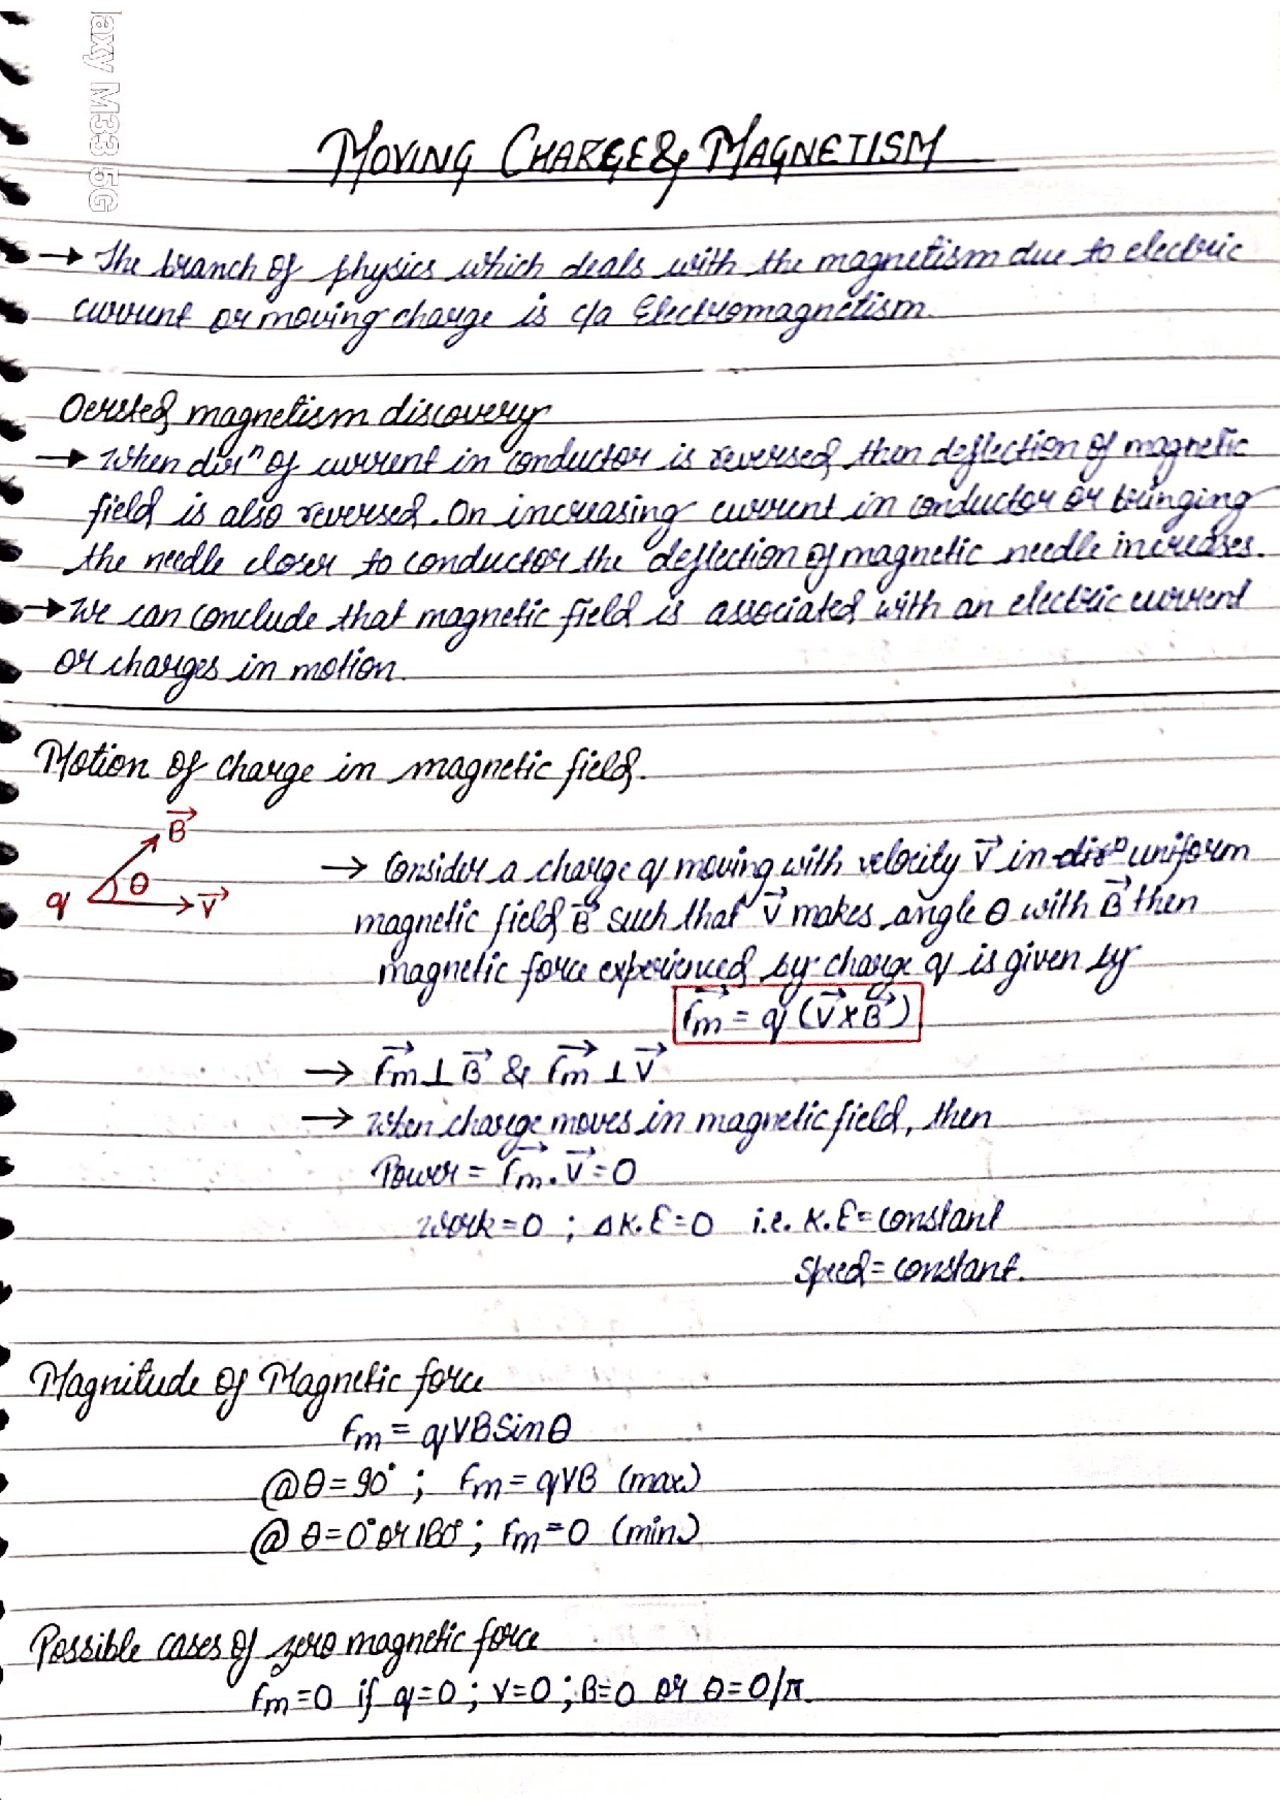 laxy M33 5G
MOVING CHARGE & MAGNETISM
→ The branch of physics which deals with the magnetism due to electric
current or moving charge is c/a Electromagnetism.
Oersted magnetism discovery
→ When dirⁿ of current in conductor is reversed then deflection of magnetic
field is also reversed. On increasing current in conductor or bringing
the needle closer to conductor the deflection of magnetic needle increases.
→ We can conclude that magnetic field is associated with an electric current
or charges in motion.
Motion of charge in magnetic field.
B⃗
q θ V⃗
→ Consider a charge q moving with velocity V⃗ in dirⁿ uniform
magnetic field B⃗ such that V⃗ makes angle θ with B⃗ then
magnetic force experienced by charge q is given by
F⃗m = q (V⃗ × B⃗)
→ F⃗m ⊥ B⃗ & F⃗m ⊥ V⃗
→ When charge moves in magnetic field, then
Power = F⃗m . V⃗ = 0
Work = 0 ; ΔK.E = 0 i.e. K.E = constant
Speed = constant.
Magnitude of Magnetic force
Fm = qVBSinθ
@ θ = 90° ; Fm = qVB (max)
@ θ = 0° or 180° ; Fm = 0 (min)
Possible cases of zero magnetic force
Fm = 0 if q = 0 ; V = 0 ; B = 0 or θ = 0/π.